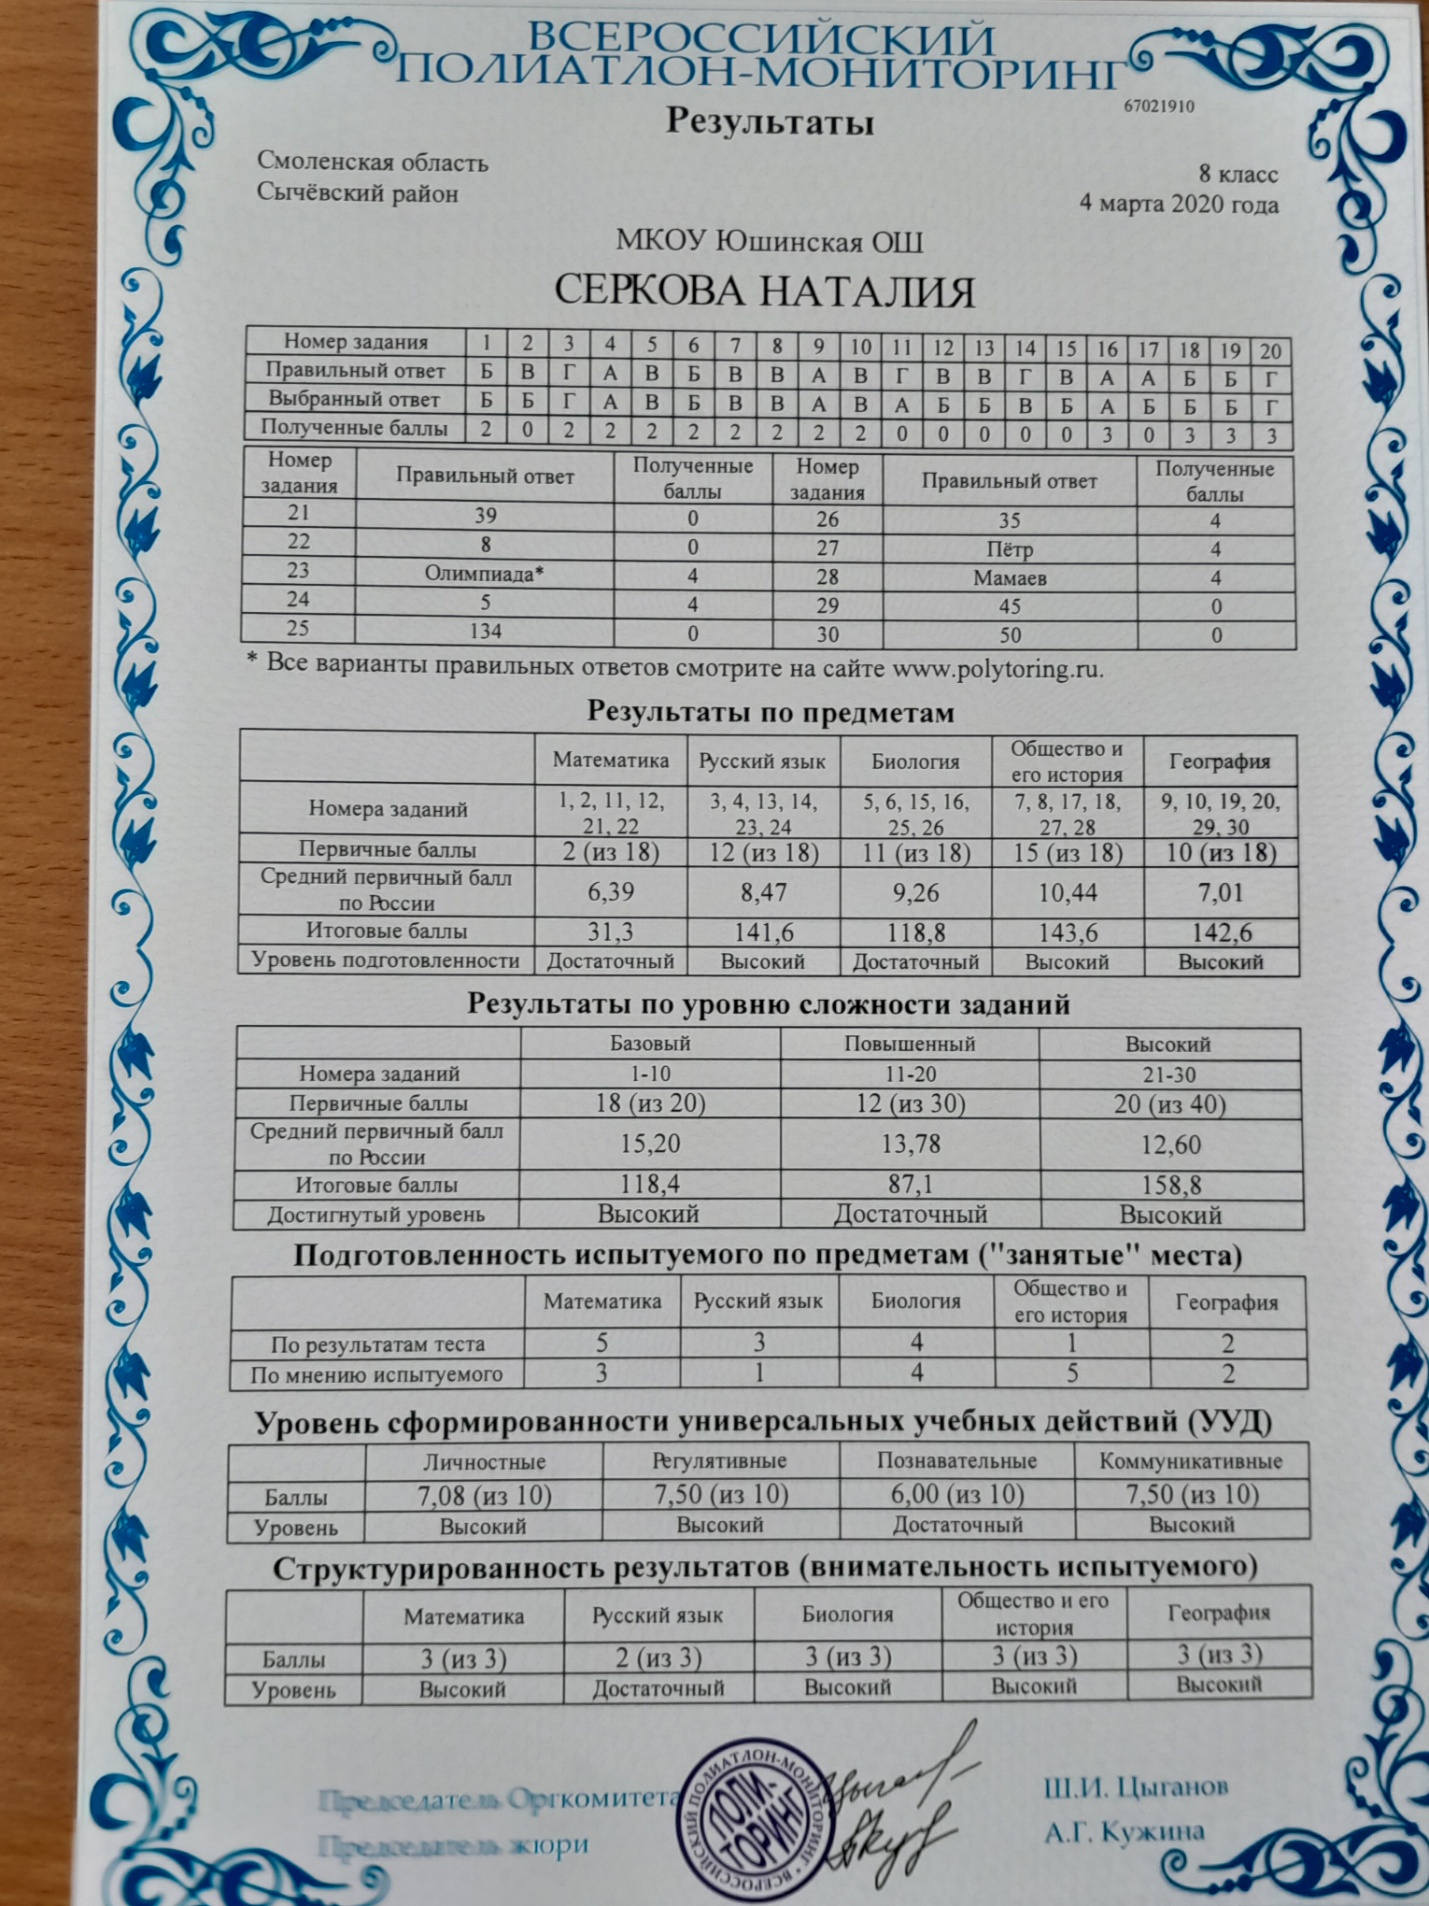 ВСЕРОССИЙСКИЙ
ПОЛИАТЛОН-МОНИТОРИНГ
67021910
Результаты
Смоленская область
8 класс
Сычёвский район
4 марта 2020 года
МКОУ Юшинская ОШ
СЕРКОВА НАТАЛИЯ
Номер задания 1 2 3 4 5 6 7 8 9 10 11 12 13 14 15 16 17 18 19 20
Правильный ответ Б В Г А В Б В В А В Г В В Г В А А Б Б Г
Выбранный ответ Б Б Г А В Б В В А В А Б Б В Б А Б Б Б Г
Полученные баллы 2 0 2 2 2 2 2 2 2 2 0 0 0 0 0 3 0 3 3 3
Номер задания Правильный ответ Полученные баллы Номер задания Правильный ответ Полученные баллы
21 39 0 26 35 4
22 8 0 27 Пётр 4
23 Олимпиада* 4 28 Мамаев 4
24 5 4 29 45 0
25 134 0 30 50 0
* Все варианты правильных ответов смотрите на сайте www.polytoring.ru.
Результаты по предметам
Математика Русский язык Биология Общество и его история География
Номера заданий 1, 2, 11, 12, 21, 22 3, 4, 13, 14, 23, 24 5, 6, 15, 16, 25, 26 7, 8, 17, 18, 27, 28 9, 10, 19, 20, 29, 30
Первичные баллы 2 (из 18) 12 (из 18) 11 (из 18) 15 (из 18) 10 (из 18)
Средний первичный балл по России 6,39 8,47 9,26 10,44 7,01
Итоговые баллы 31,3 141,6 118,8 143,6 142,6
Уровень подготовленности Достаточный Высокий Достаточный Высокий Высокий
Результаты по уровню сложности заданий
Базовый Повышенный Высокий
Номера заданий 1-10 11-20 21-30
Первичные баллы 18 (из 20) 12 (из 30) 20 (из 40)
Средний первичный балл по России 15,20 13,78 12,60
Итоговые баллы 118,4 87,1 158,8
Достигнутый уровень Высокий Достаточный Высокий
Подготовленность испытуемого по предметам ("занятые" места)
Математика Русский язык Биология Общество и его история География
По результатам теста 5 3 4 1 2
По мнению испытуемого 3 1 4 5 2
Уровень сформированности универсальных учебных действий (УУД)
Личностные Регулятивные Познавательные Коммуникативные
Баллы 7,08 (из 10) 7,50 (из 10) 6,00 (из 10) 7,50 (из 10)
Уровень Высокий Высокий Достаточный Высокий
Структурированность результатов (внимательность испытуемого)
Математика Русский язык Биология Общество и его история География
Баллы 3 (из 3) 2 (из 3) 3 (из 3) 3 (из 3) 3 (из 3)
Уровень Высокий Достаточный Высокий Высокий Высокий
Председатель Оргкомитета Ш.И. Цыганов
Председатель жюри А.Г. Кужина
ВСЕРОССИЙСКИЙ ПОЛИАТЛОН-МОНИТОРИНГ
ПОЛИ-
ТОРИНГ